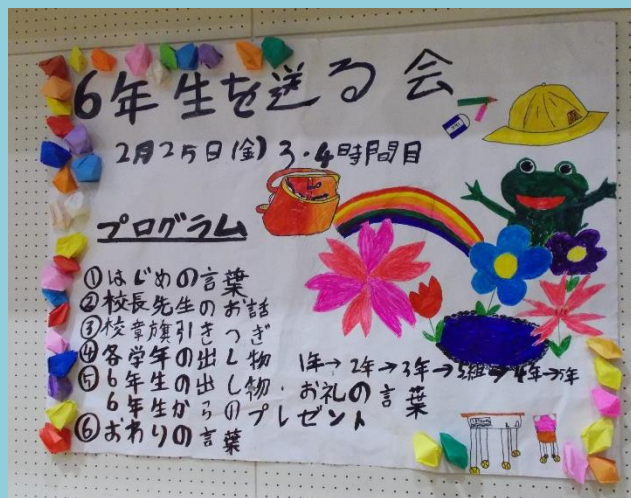 6年生を送る会
2月25日(金) 3・4時間目
プログラム
①はじめの言葉
②校長先生のお話
③校章旗引きつぎ
④各学年の出し物
1年→2年→3年→5組→4年→5年
⑤6年生の出し物・お礼の言葉
6年生からのプレゼント
⑥おわりの言葉